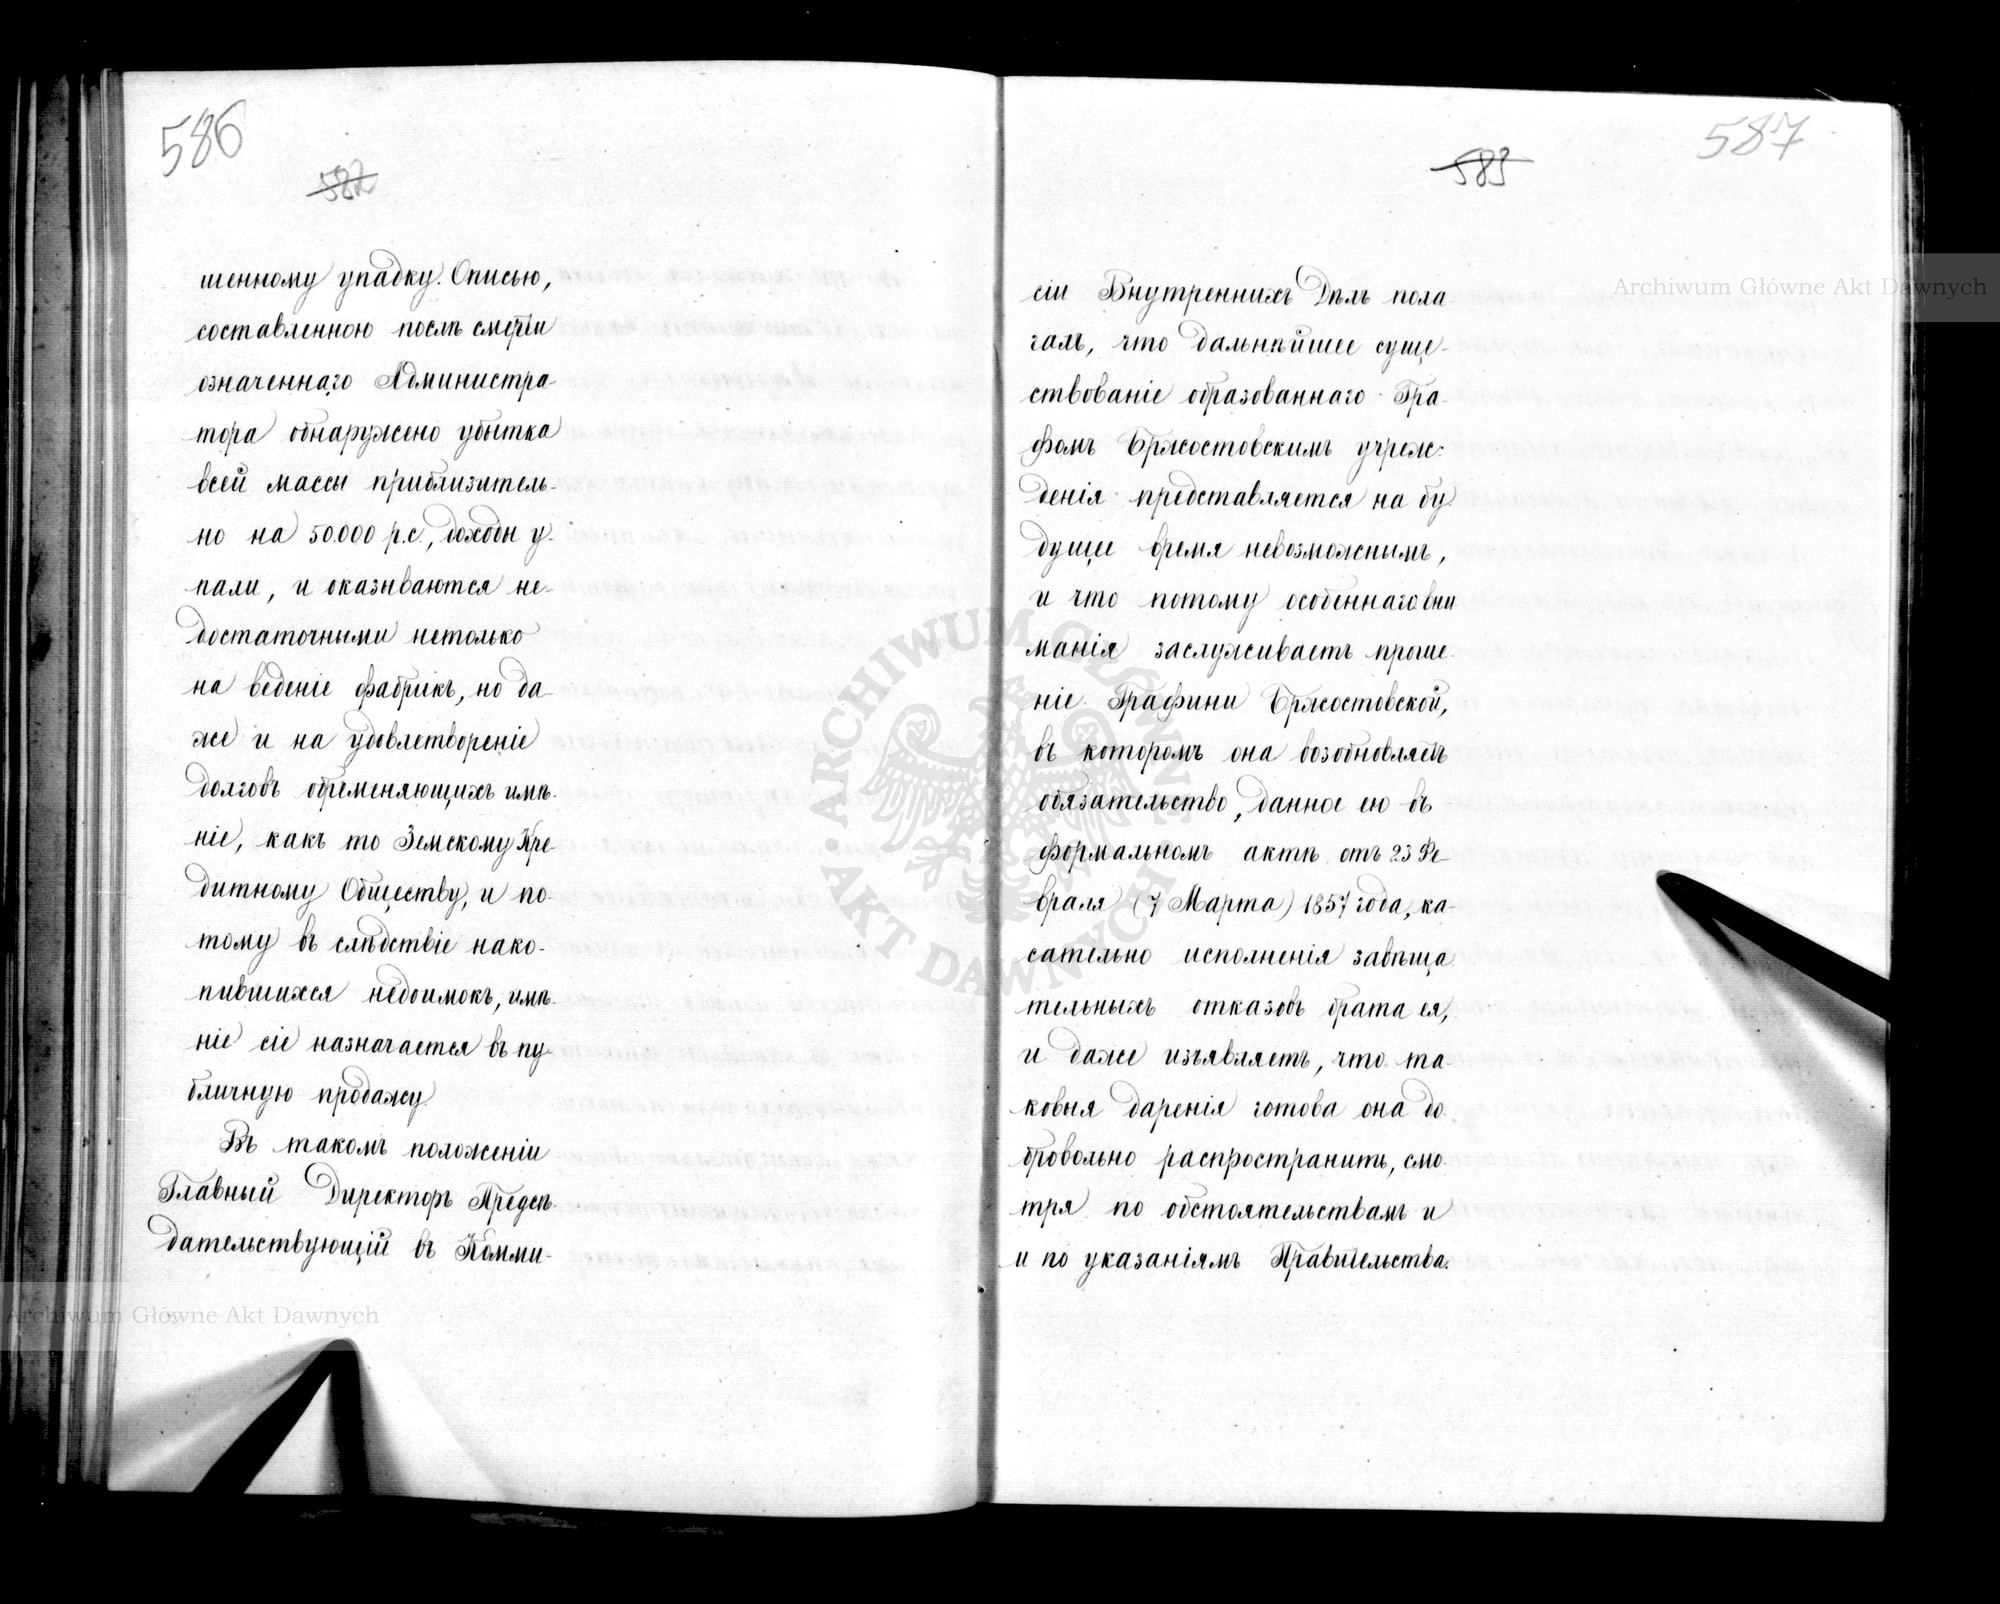 586
582
шенному упадку. Описью,
составленною послѣ смерти
означеннаго Администра-
тора обнаружено убытка
всей массы приблизитель-
но на 50.000 р.с., доходы у-
пали, и оказываются не-
достаточными нетолько
на веденіе фабрикъ, но да-
же и на удовлетвореніе
долговъ обременяющихъ имѣ-
ніе, какъ то Земскому Кре-
дитному Обществу, и по-
тому въ слѣдствіе нако-
пившихся недоимокъ, имѣ-
ніе сіе назначается въ пу-
бличную продажу.
Въ такомъ положеніи
Главный Директоръ Предсѣ-
дательствующій въ Комми-
587
583
сіи Внутреннихъ Дѣлъ пола
галъ, что дальнѣйшее суще-
ствованіе образованнаго Гра-
фомъ Бржостовскимъ учреж-
денія представляется на бу
дущее время невозможнымъ,
и что потому особеннаго вни
манія заслуживаетъ проше-
ніе Графини Бржостовской,
въ которомъ она возобновляетъ
обязательство, данное ею въ
формальномъ актѣ отъ 23 Фе
враля (7 Марта) 1857 года, ка-
сательно исполненія завѣща
тельныхъ отказовъ брата ея,
и даже изъявляетъ, что та-
ковыя даренія готова она до
бровольно распространить, смо
тря по обстоятельствамъ и
и по указаніямъ Правительства.
Archiwum Główne Akt Dawnych
Archiwum Główne Akt Dawnych
ARCHIWUM GŁÓWNE AKT DAWNYCH